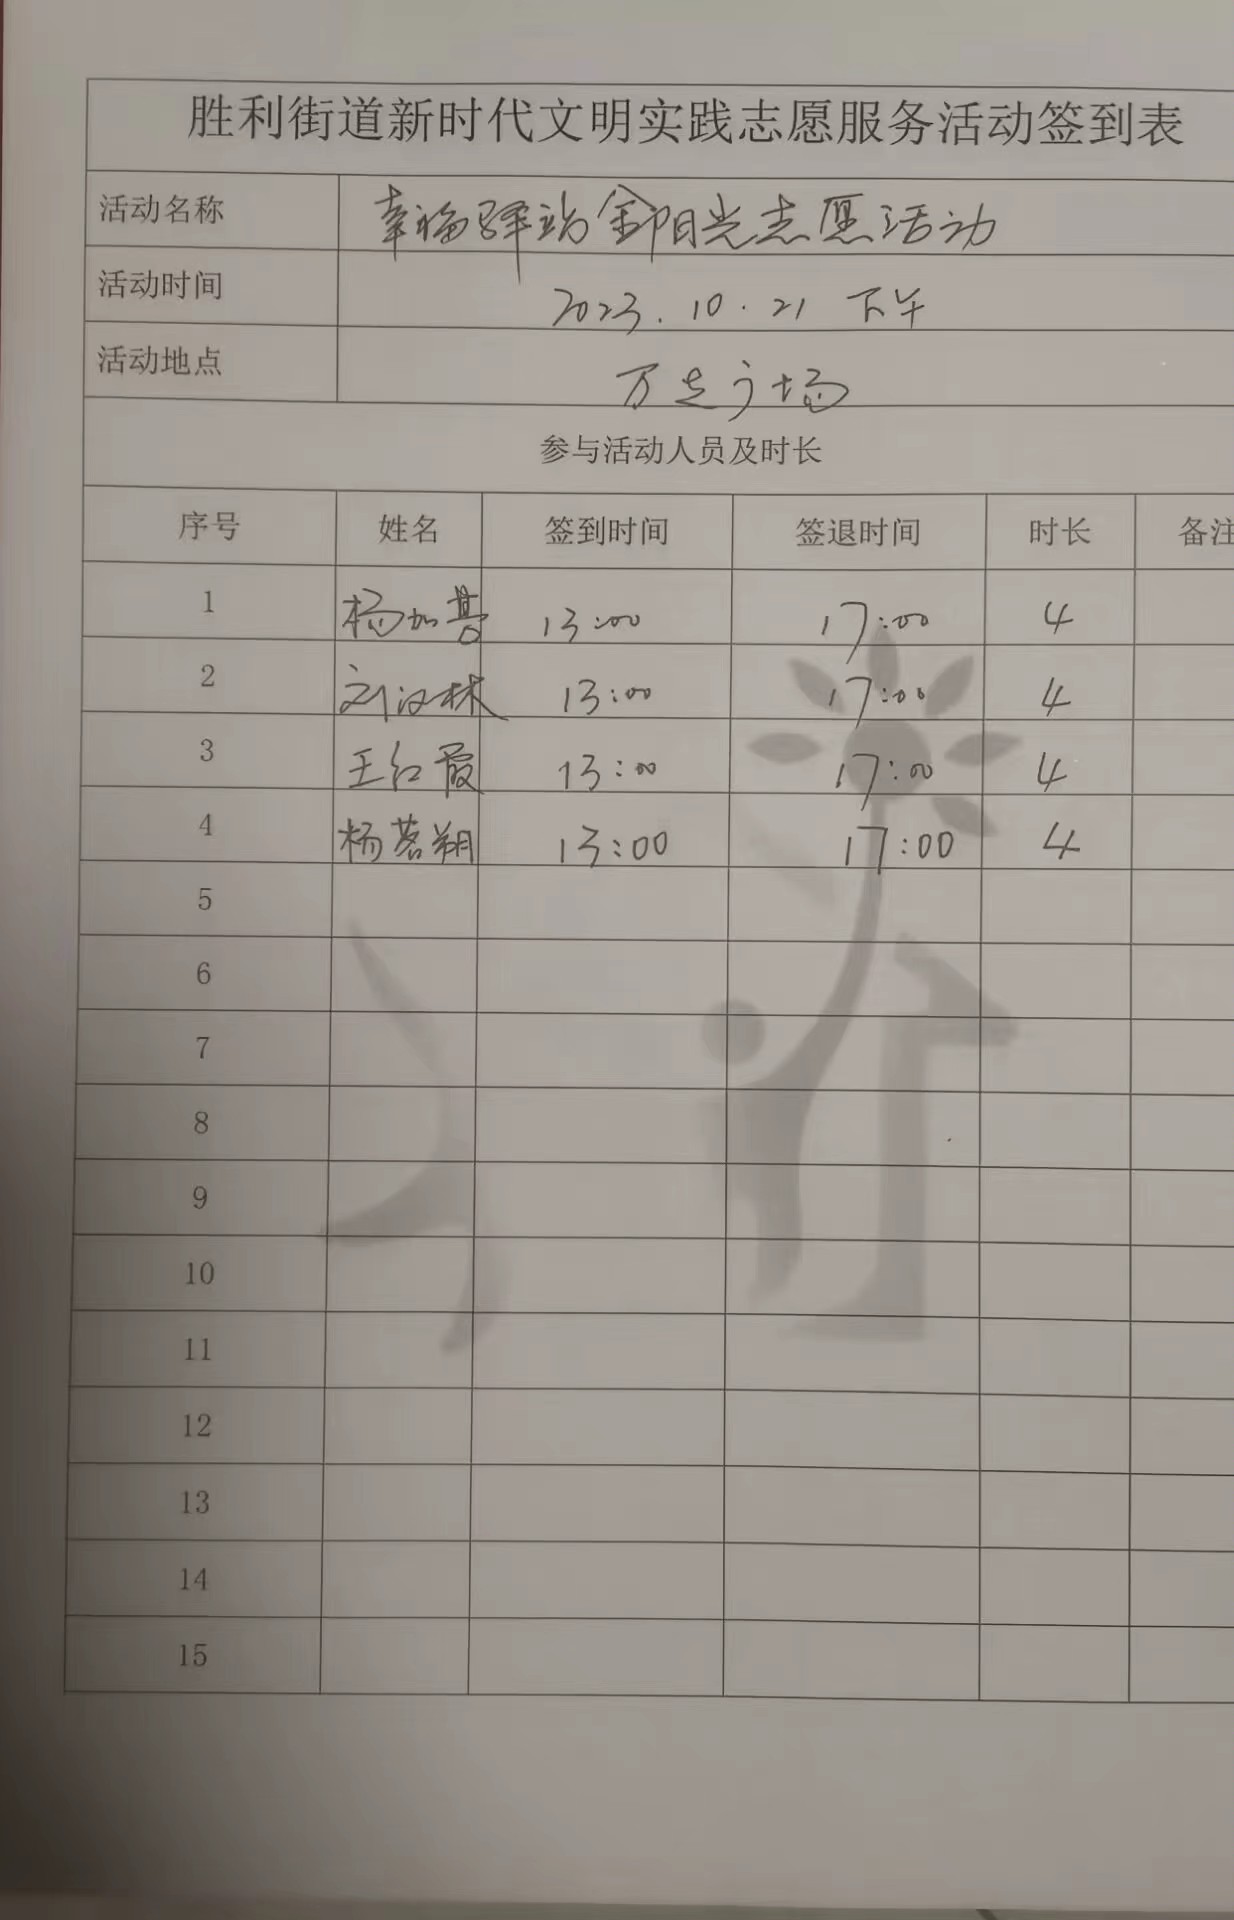 胜利街道新时代文明实践志愿服务活动签到表
活动名称 幸福驿站金阳光志愿活动
活动时间 2023.10.21 下午
活动地点 万达广场
参与活动人员及时长
序号 姓名 签到时间 签退时间 时长 备注
1 杨加 13:00 17:00 4
2 刘汉林 13:00 17:00 4
3 王红霞 13:00 17:00 4
4 杨茗翔 13:00 17:00 4
5
6
7
8
9
10
11
12
13
14
15